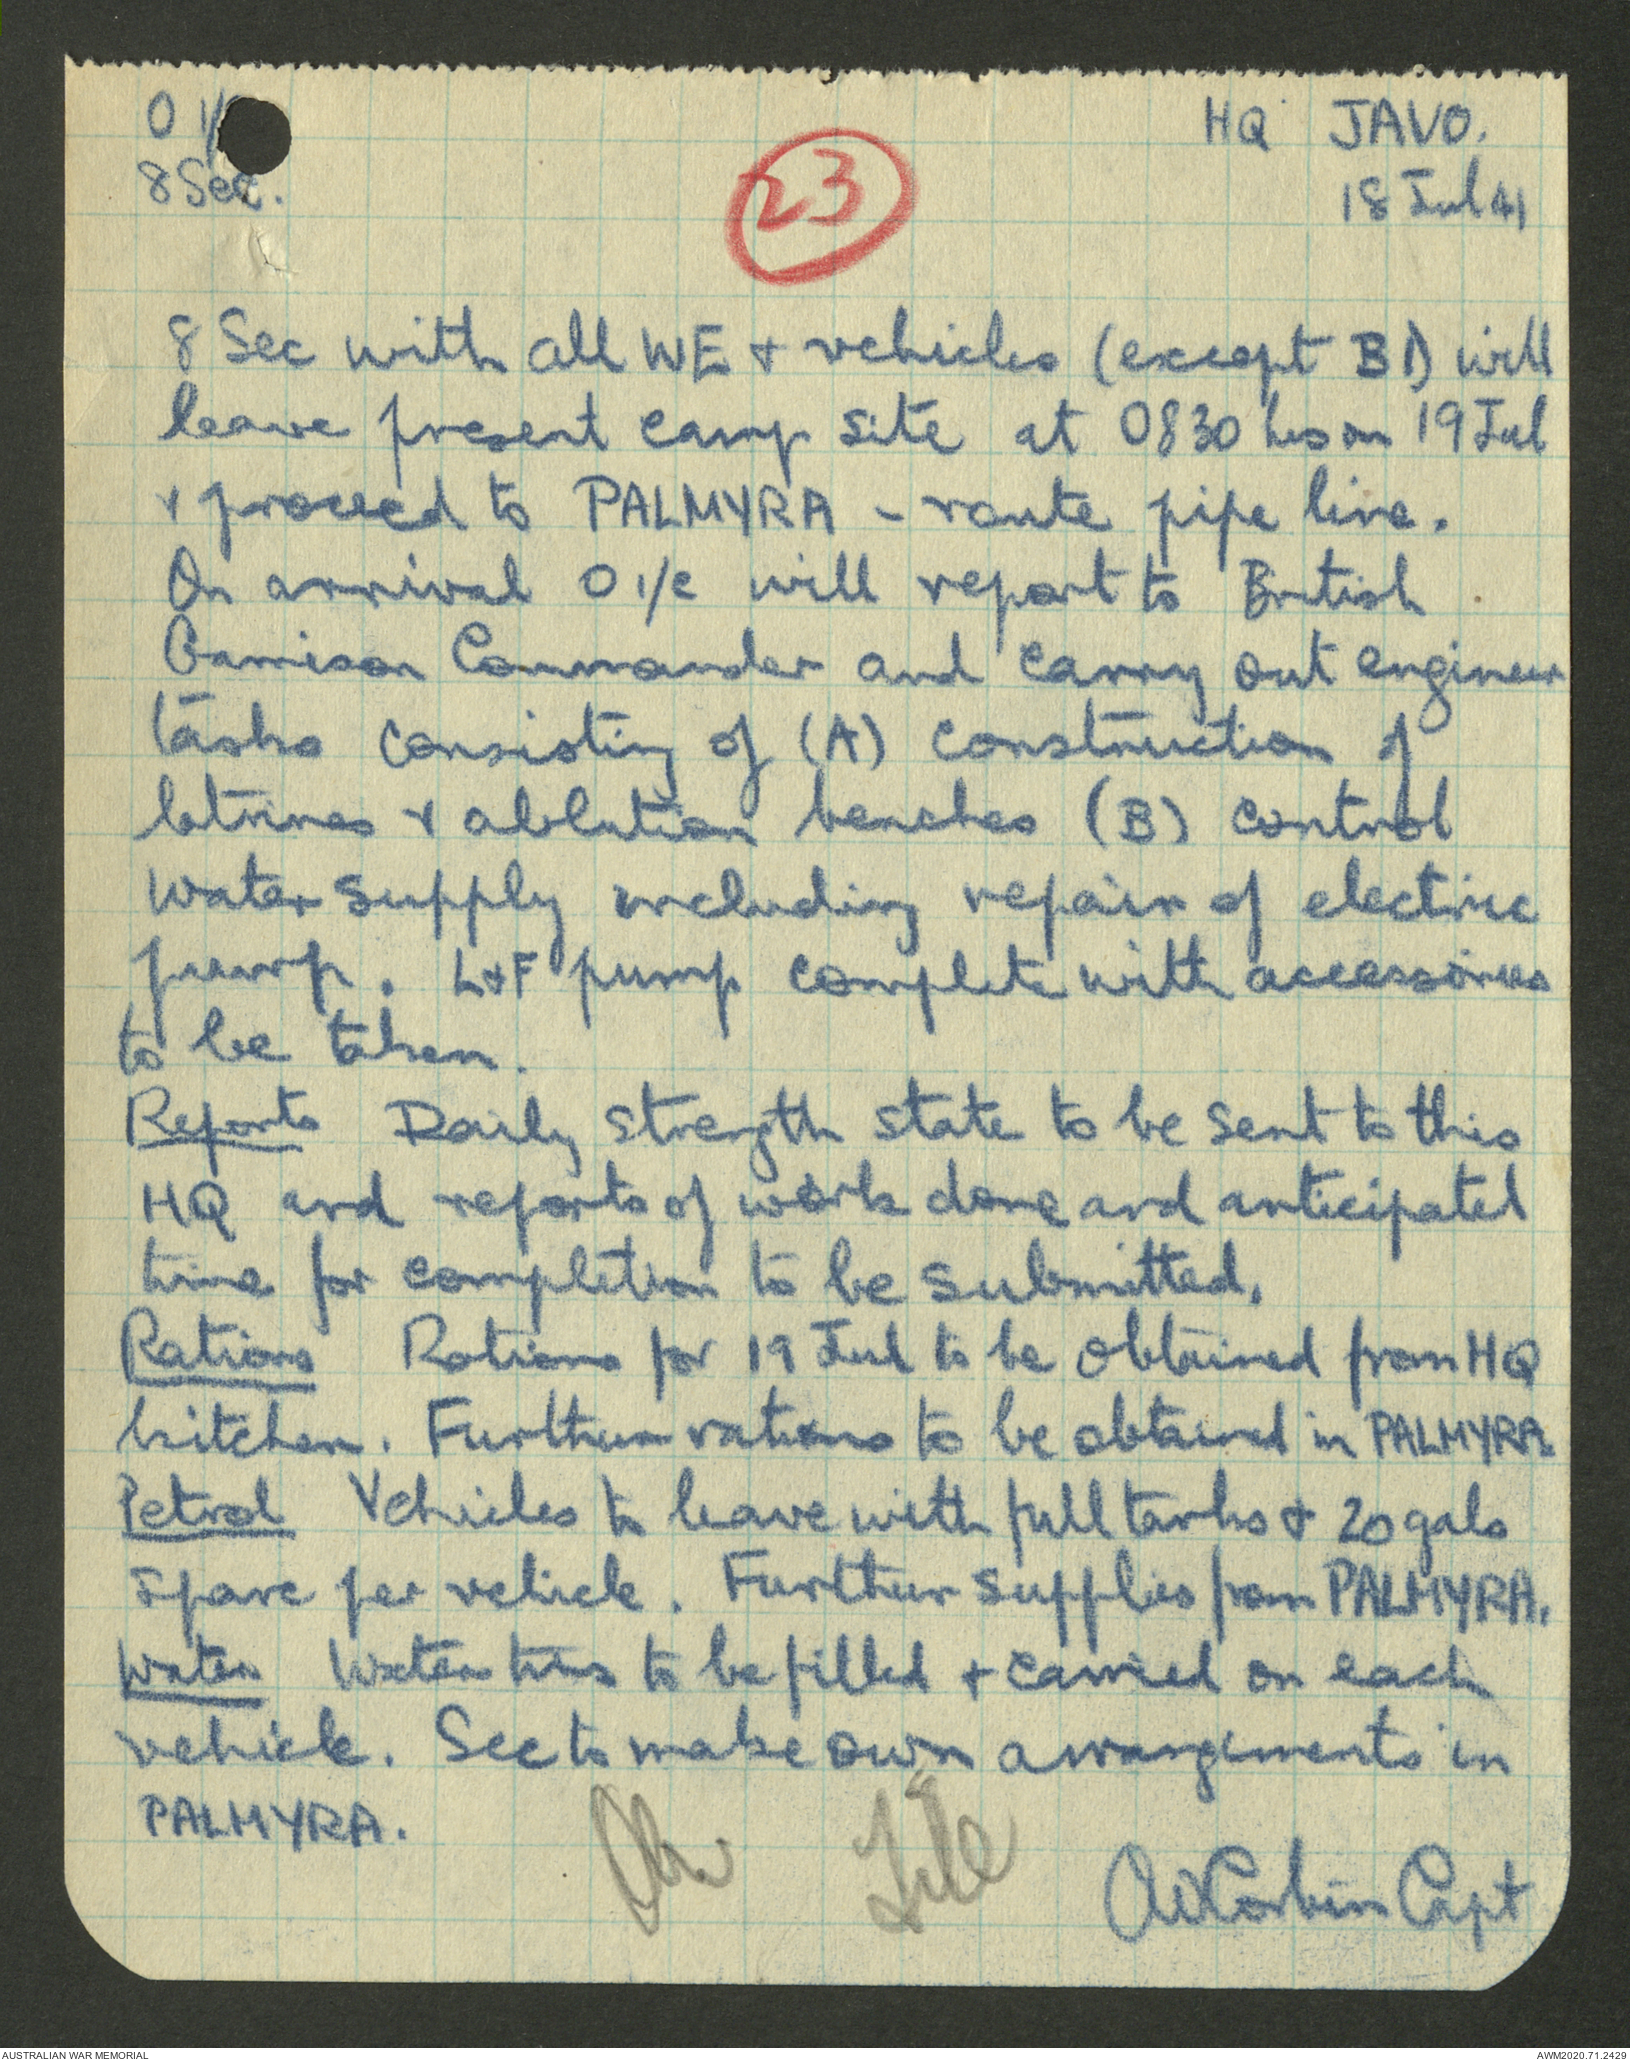 O i/
HQ JAVO.
8 Sec.
18 Jul 41
23
8 Sec with all WE & vehicles (except B1) will
leave present camp site at 0830 hrs on 19 Jul
& proceed to PALMYRA - route pipe line.
On arrival O i/c will report to British
Garrison Commander and carry out engineer
tasks consisting of (A) construction of
latrines & ablution benches (B) control
water supply including repair of electric
pump. L&F pump complete with accessories
to be taken.
Reports Daily strength state to be sent to this
HQ and reports of work done and anticipated
time for completion to be submitted.
Rations Rations for 19 Jul to be obtained from HQ
kitchen. Further rations to be obtained in PALMYRA
Petrol Vehicles to leave with full tanks & 20 gals
spare per vehicle. Further supplies from PALMYRA.
Water Water tins to be filled & carried on each
vehicle. Sec to make own arrangements in
PALMYRA.
File
Corbin Capt
AUSTRALIAN WAR MEMORIAL
AWM2020.71.2429